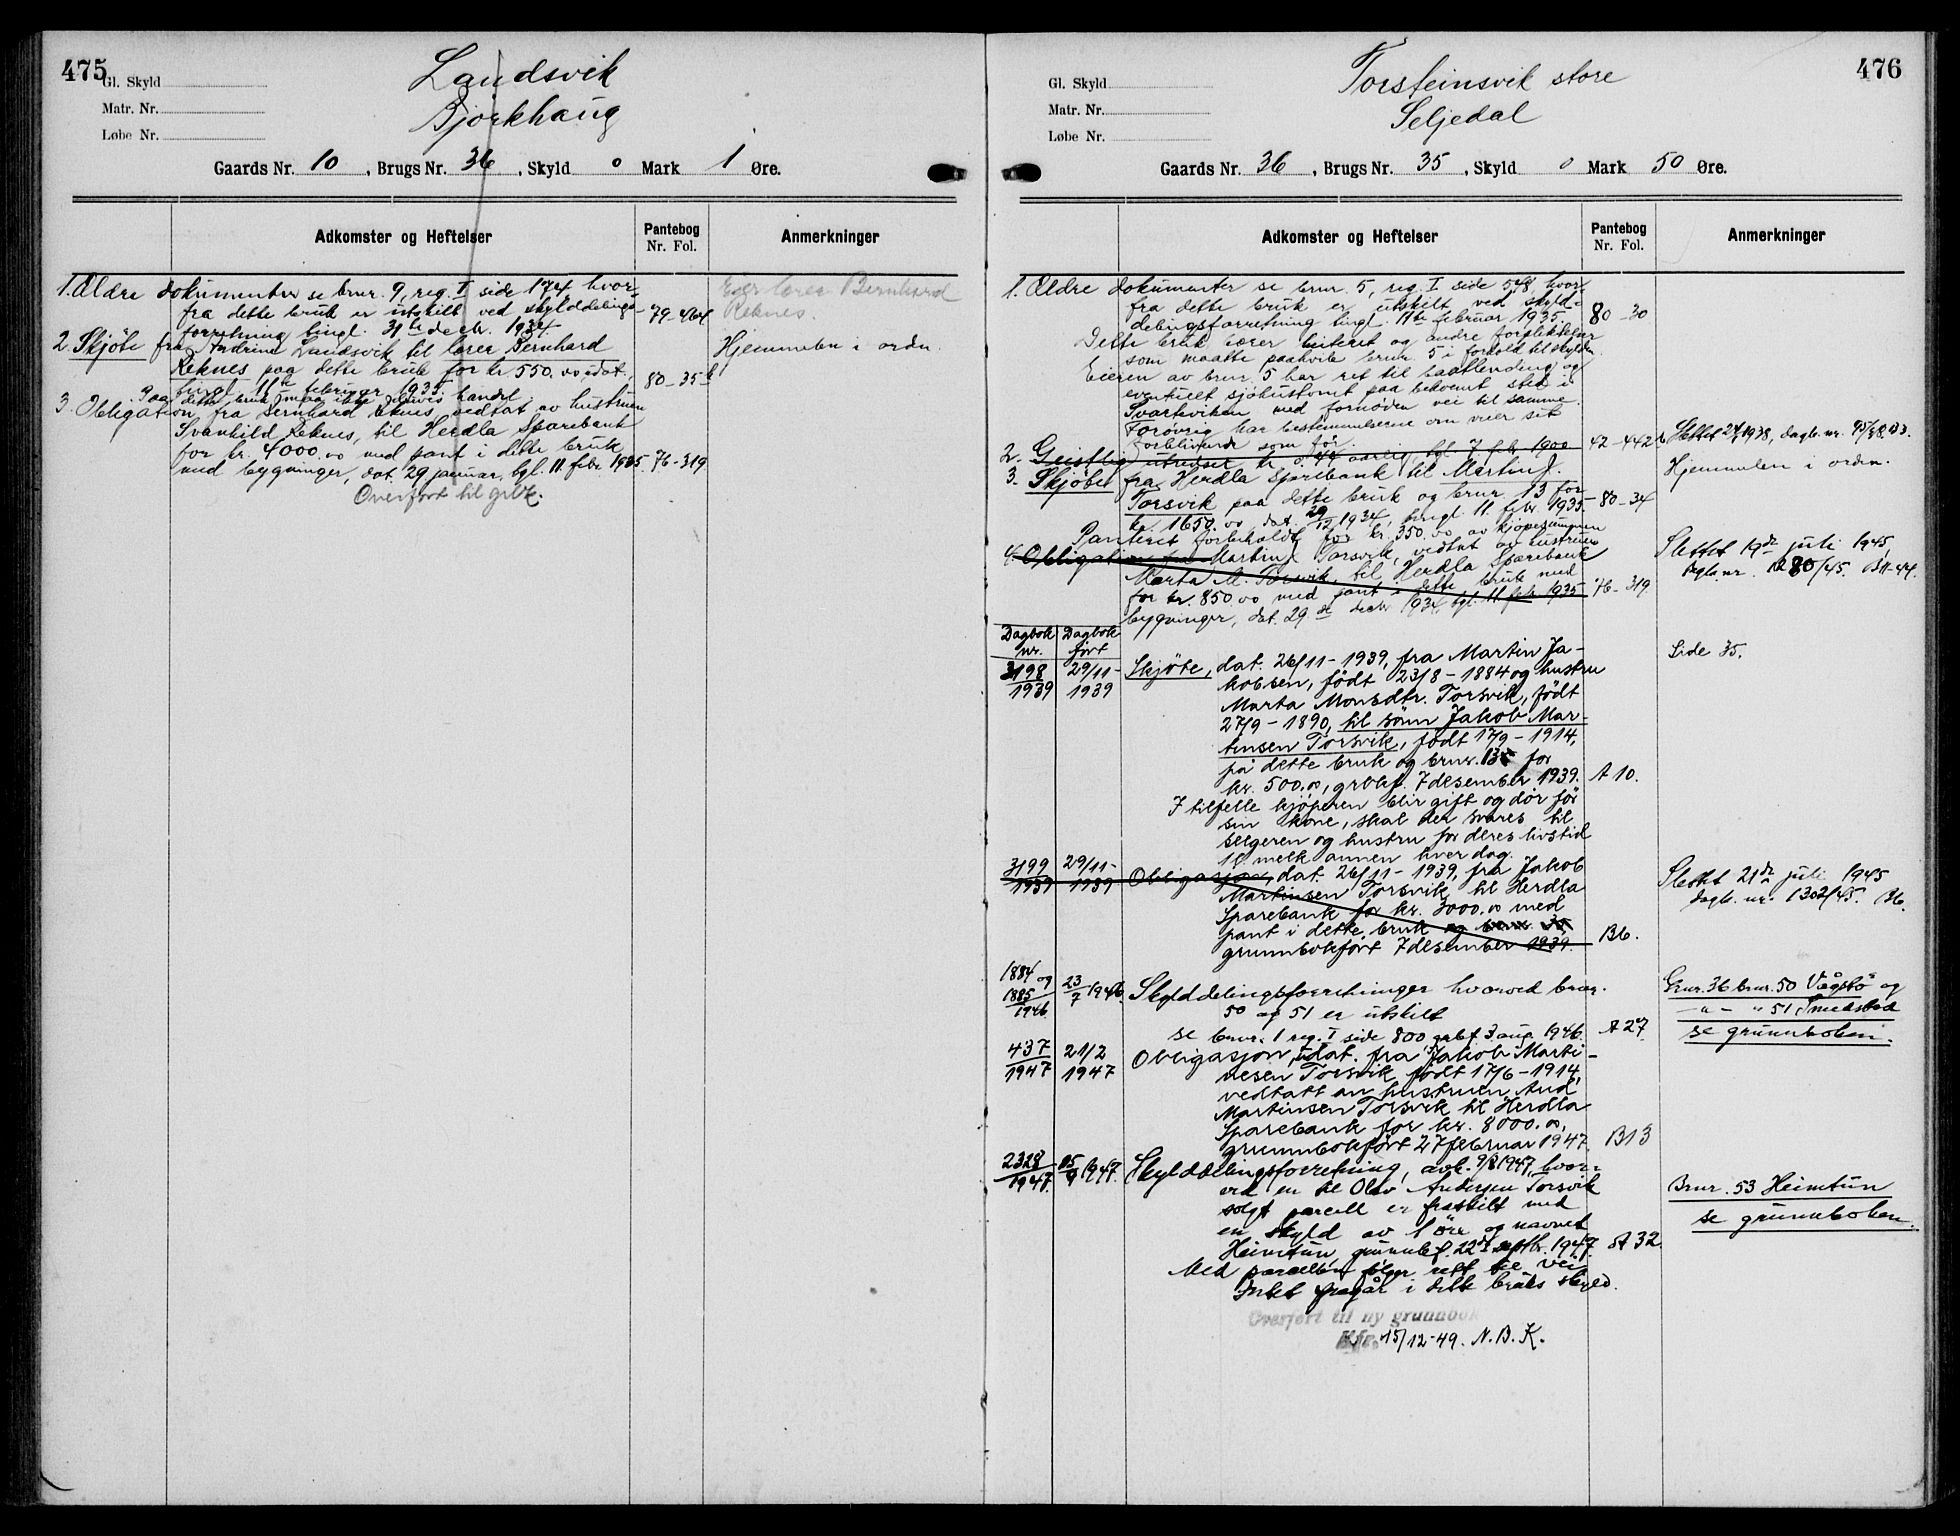 475
Gl. Skyld
Matr. Nr.
Løbe Nr.
Landsvik
Bjørkhaug
Gaards Nr. 10, Brugs Nr. 36, Skyld 0 Mark 1 Øre.
Adkomster og Heftelser
Pantebog
Nr. Fol.
Anmerkninger
1. Ældre dokumenter se bnr. 9, reg. I side 174 hvor-
fra dette bruk er utskilt ved skylddelings-
forretning tingl. 31te decbr. 1934.
79-464
Eier lærer Bernhard
Reknes.
2. Skjøte fra Landsvik til lærer Bernhard
Reknes paa dette bruk for kr. 550.00, dat.
tingl. 11te februar 1935.
80-35
Hjemmelen i orden
Paa dette bruk maa ikke drives handel.
3. Obligation fra Bernhard Reknes, vedtat av hustruen
Svanhild Reknes, til Herdla Sparebank
for kr. 4000.00 med pant i dette bruk
med bygninger, dat. 29 januar, tgl. 11 febr. 1935
76-319
Overført til grbk.
476
Gl. Skyld
Matr. Nr.
Løbe Nr.
Torsteinsvik store
Seljedal
Gaards Nr. 36, Brugs Nr. 35, Skyld 0 Mark 50 Øre.
Adkomster og Heftelser
Pantebog
Nr. Fol.
Anmerkninger
1. Ældre dokumenter se bnr. 5, reg. I side 548, hvor-
fra dette bruk er utskilt ved skyld-
delingsforretning tingl. 11te februar 1935.
80-30
Dette bruk bærer beiteret og andre forpliktelser
som maatte paahvile bnr. 5 i forhold til skylden.
Eieren av bnr. 5 har ret til baatlending og
eventuelt sjøhustomt paa bekvemt sted i
Svartviken med fornøden vei til samme.
Forøvrig har bestemmelserne om veier sit
forblivende som før.
2. Geistlig utredsel kr. 0.44 aarlig, tgl. 7 febr. 1900
42-442
Slettet 1938, dagb. nr.
3. Skjøte fra Herdla Sparebank til Martin J.
Torsvik paa dette bruk og bnr. 13 for
kr. 1650.00, dat. 29/12 1934, tingl. 11. febr. 1935.
80-34
Hjemmelen i orden.
Panteret forbeholdt for kr. 350.00 av kjøpesummen
4. Obligation fra Martin J. Torsvik, vedtat av hustruen
Marta M. Torsvik, til Herdla Sparebank
for kr. 850.00 med pant i dette bruk med
bygninger, dat. 29de decbr. 1934, tgl. 11 febr. 1935
76-319
Slettet 19de juli 1945,
Dagb. nr. 1280/45. B11-44.
Dagbok nr. Dagbok ført
Side 35.
3198/1939 29/11-1939 Skjøte, dat. 26/11-1939, fra Martin Ja-
kobsen, født 23/8-1884 og hustru
Marta Monsdtr. Torsvik, født
27/9-1890, til sønn Jakob Mar-
tinsen Torsvik, født 17/9-1914,
på dette bruk og bnr. 13 for
kr. 500.00, grbkf. 7 desember 1939.
A 10.
I tilfelle kjøperen blir gift og dør før
sin kone, skal der svares til
selgeren og hustru for deres livstid
1 l. melk annen hver dag.
3199/1939 29/11-1939 Obligasjon, dat. 26/11-1939, fra Jakob
Martinsen Torsvik til Herdla
Sparebank for kr. 3000.00 med
pant i dette bruk og bnr. 35
grunnbokført 7 desember 1939.
B6.
Slettet 21de juli 1945
dagb. nr. 1302/45. B6.
1884 og 1885/1946 23/7 1946 Skylddelingsforretninger hvorved bnr.
50 og 51 er utskilt
se bnr. 1 reg. I side 800 grbf. 3 aug. 1946.
A 27.
Gnr. 36 bnr. 50 Vågebø og
-"- " 51 Smedstad
se grunnboken.
437/1947 21/2 1947 Obligasjon, udat. fra Jakob Marti-
nesen Torsvik, født 17/6-1914,
vedtatt av hustruen Aud
Martinsen Torsvik til Herdla
Sparebank for kr. 8000.00,
grunnbokført 27 februar 1947.
B13
2328/1947 15/9 1947. Skylddelingsforretning, avh. 9/8 1947, hvor-
ved en til Olav Andersen Torsvik
solgt parcell er fraskilt med
en skyld av 1 øre og navnet
Heimtun, grunnbf. 22de septbr. 1947.
A 32.
Bnr. 53 Heimtun
se grunnboken.
Med parcellen følger rett til vei
Intet fragår i dette bruks skyld.
Overført til ny grunnbok
Kfr. 15/12-49. N.B.K.